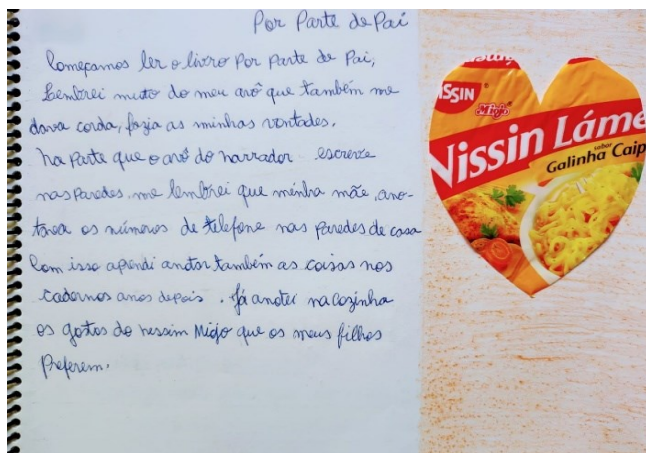 Por Parte de Pai
Começamos ler o livro Por Parte de Pai,
Lembrei muto do meu avô que também me
dava corda, fazia as minhas vontades.
Na Parte que o avô do narrador escreve
nas paredes me lembrei que minha mãe, ano-
tava os números de telefone nas paredes de casa
Com isso aprendi anotar também as coisas nos
cadernos anos depois. Já anotei na cozinha
os gostos do nessim Miojo que os meus filhos
Preferem.
ISSIN
Miojo
Nissin Láme
sabor
Galinha Caip